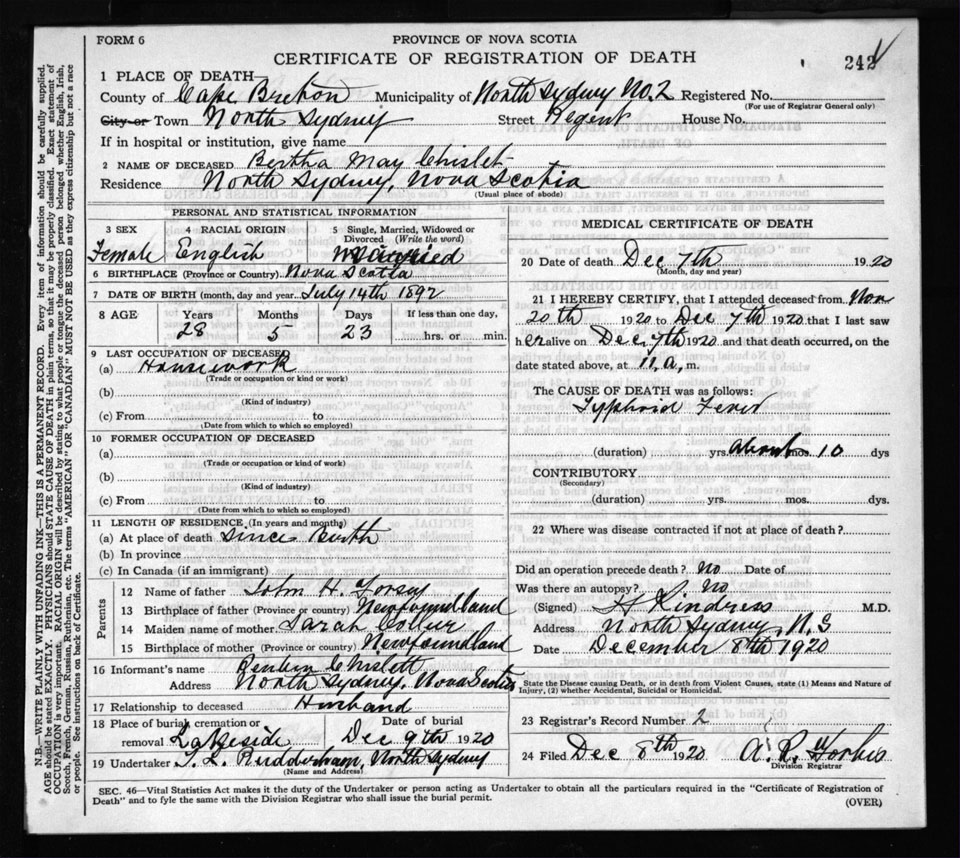 FORM 6
PROVINCE OF NOVA SCOTIA
CERTIFICATE OF REGISTRATION OF DEATH
242
1 PLACE OF DEATH
County of Cape Breton Municipality of North Sydney No. 2 Registered No.
(For use of Registrar General only)
City or Town North Sydney Street Regent House No.
If in hospital or institution, give name
2 NAME OF DECEASED Bertha May Chislet
Residence North Sydney, Nova Scotia
(Usual place of abode)
PERSONAL AND STATISTICAL INFORMATION
3 SEX 4 RACIAL ORIGIN 5 Single, Married, Widowed or
Divorced (Write the word)
Female English Married
6 BIRTHPLACE (Province or Country) Nova Scotia
7 DATE OF BIRTH (month, day and year) July 14th 1892
8 AGE Years Months Days If less than one day,
28 5 23 hrs. or min.
9 LAST OCCUPATION OF DECEASED
(a) Housework
(Trade or occupation or kind or work)
(b)
(Kind of industry)
(c) From to
(Date from which to which so employed)
10 FORMER OCCUPATION OF DECEASED
(a)
(Trade or occupation or kind of work)
(b)
(Kind of industry)
(c) From to
(Date from which to which so employed)
11 LENGTH OF RESIDENCE (In years and months)
(a) At place of death Since Birth
(b) In province
(c) In Canada (if an immigrant)
Parents
12 Name of father John H.
13 Birthplace of father (Province or country) Newfoundland
14 Maiden name of mother Sarah
15 Birthplace of mother (Province or country) Newfoundland
16 Informant's name Chislett
Address North Sydney, Nova Scotia
17 Relationship to deceased Husband
18 Place of burial, cremation or Date of burial
removal Lakeside Dec 9th 1920
19 Undertaker North Sydney
(Name and Address)
MEDICAL CERTIFICATE OF DEATH
20 Date of death Dec 7th 1920
(Month, day and year)
21 I HEREBY CERTIFY, that I attended deceased from Nov
20th 1920 to Dec 7th 1920 that I last saw
her alive on Dec 7th 1920 and that death occurred, on the
date stated above, at 11, a, m.
The CAUSE OF DEATH was as follows:
Typhoid Fever
(duration) yrs. about mos. 10 dys
CONTRIBUTORY
(Secondary)
(duration) yrs. mos. dys.
22 Where was disease contracted if not at place of death?
Did an operation precede death? No Date of
Was there an autopsy? No
(Signed) M.D.
Address North Sydney, N.S
Date December 8th 1920
State the Disease causing Death, or in death from Violent Causes, state (1) Means and Nature of
Injury, (2) whether Accidental, Suicidal or Homicidal.
23 Registrar's Record Number 2
24 Filed Dec 8th 1920 A. R. Forbes
Division Registrar
SEC. 46—Vital Statistics Act makes it the duty of the Undertaker or person acting as Undertaker to obtain all the particulars required in the "Certificate of Registration of
Death" and to fyle the same with the Division Registrar who shall issue the burial permit.
(OVER)
N.B.—WRITE PLAINLY WITH UNFADING INK—THIS IS A PERMANENT RECORD. Every item of information should be carefully supplied.
AGE should be stated EXACTLY. PHYSICIANS should STATE CAUSE OF DEATH in plain terms, so that it may be properly classified. Exact statement of
OCCUPATION is very important. RACIAL ORIGIN will be described by stating to what people or tongue the deceased person belonged whether English, Irish,
Scotch, French, German, Russian, Ruthenian, etc. The terms "AMERICAN" or "CANADIAN" MUST NOT BE USED as they express citizenship but not a race
or people. See instructions on back of Certificate.